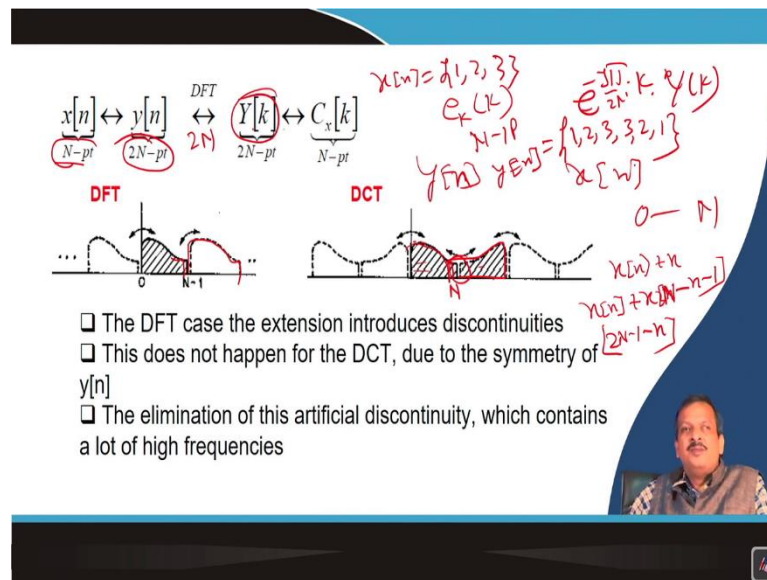 x[n] ↔ y[n] DFT ↔ Y[k] ↔ C_x[k]
N-pt 2N-pt 2N 2N-pt N-pt
x[n] = {1, 2, 3}
N-1
y[n] y[n] = {1, 2, 3, 3, 2, 1}
x[n]
0 — N
DFT
DCT
... 0 N-1 ..
N
x[n] + x
x[n] + x[2N-n-1]
[2N-1-n]
❑ The DFT case the extension introduces discontinuities
❑ This does not happen for the DCT, due to the symmetry of
y[n]
❑ The elimination of this artificial discontinuity, which contains
a lot of high frequencies